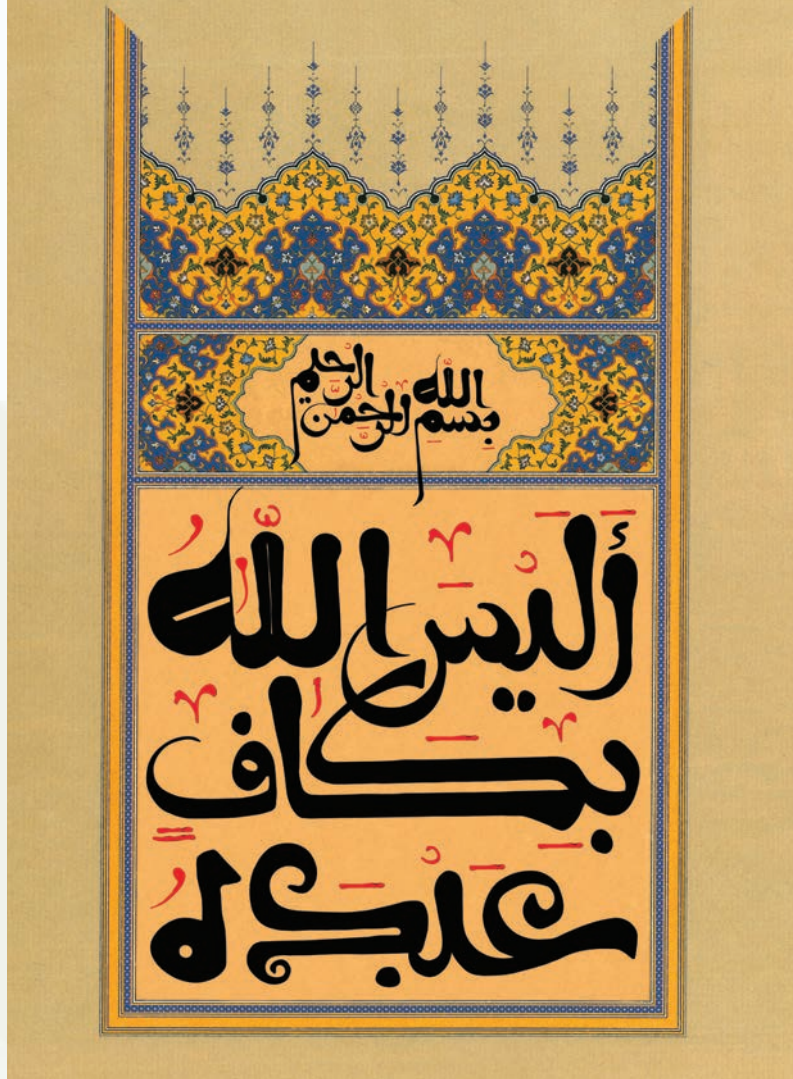 بسم الله الرحمن الرحيم
أَلَيْسَ اللَّهُ
بِكَافٍ
عَبْدَهُ